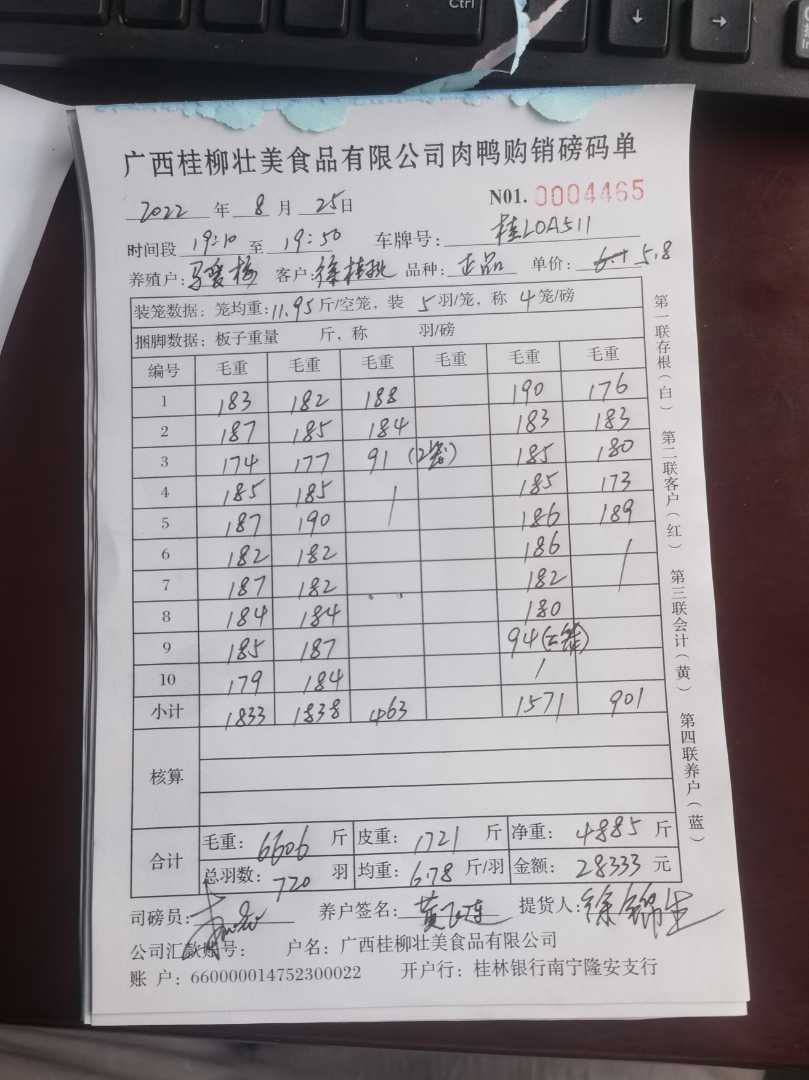 Ctrl
广西桂柳壮美食品有限公司肉鸭购销磅码单
2022 年 8 月 25 日 N01. 0004465
时间段 19:10 至 19:50 车牌号: 桂L0A511
养殖户: 客户: 徐桂 品种: 正品 单价: 5.8
装笼数据: 笼均重: 11.95 斤/空笼, 装 5 羽/笼, 称 4 笼/磅
捆脚数据: 板子重量 斤, 称 羽/磅
编号 毛重 毛重 毛重 毛重 毛重 毛重
1 183 182 188 190 176
2 187 185 184 183 183
3 174 177 91 (2笼) 185 180
4 185 185 / 185 173
5 187 190 186 189
6 182 182 186 /
7 187 182 182
8 184 184 180
9 185 187 94 (2笼)
10 179 184 /
小计 1833 1838 463 1571 901
核算
合计 毛重: 6606 斤 皮重: 1721 斤 净重: 4885 斤
总羽数: 720 羽 均重: 6.78 斤/羽 金额: 28333 元
司磅员: 养户签名: 黄飞连 提货人: 徐锦生
公司汇款账号: 户名: 广西桂柳壮美食品有限公司
账 户: 660000014752300022 开户行: 桂林银行南宁隆安支行
第一联存根(白) 第二联客户(红) 第三联会计(黄) 第四联养户(蓝)